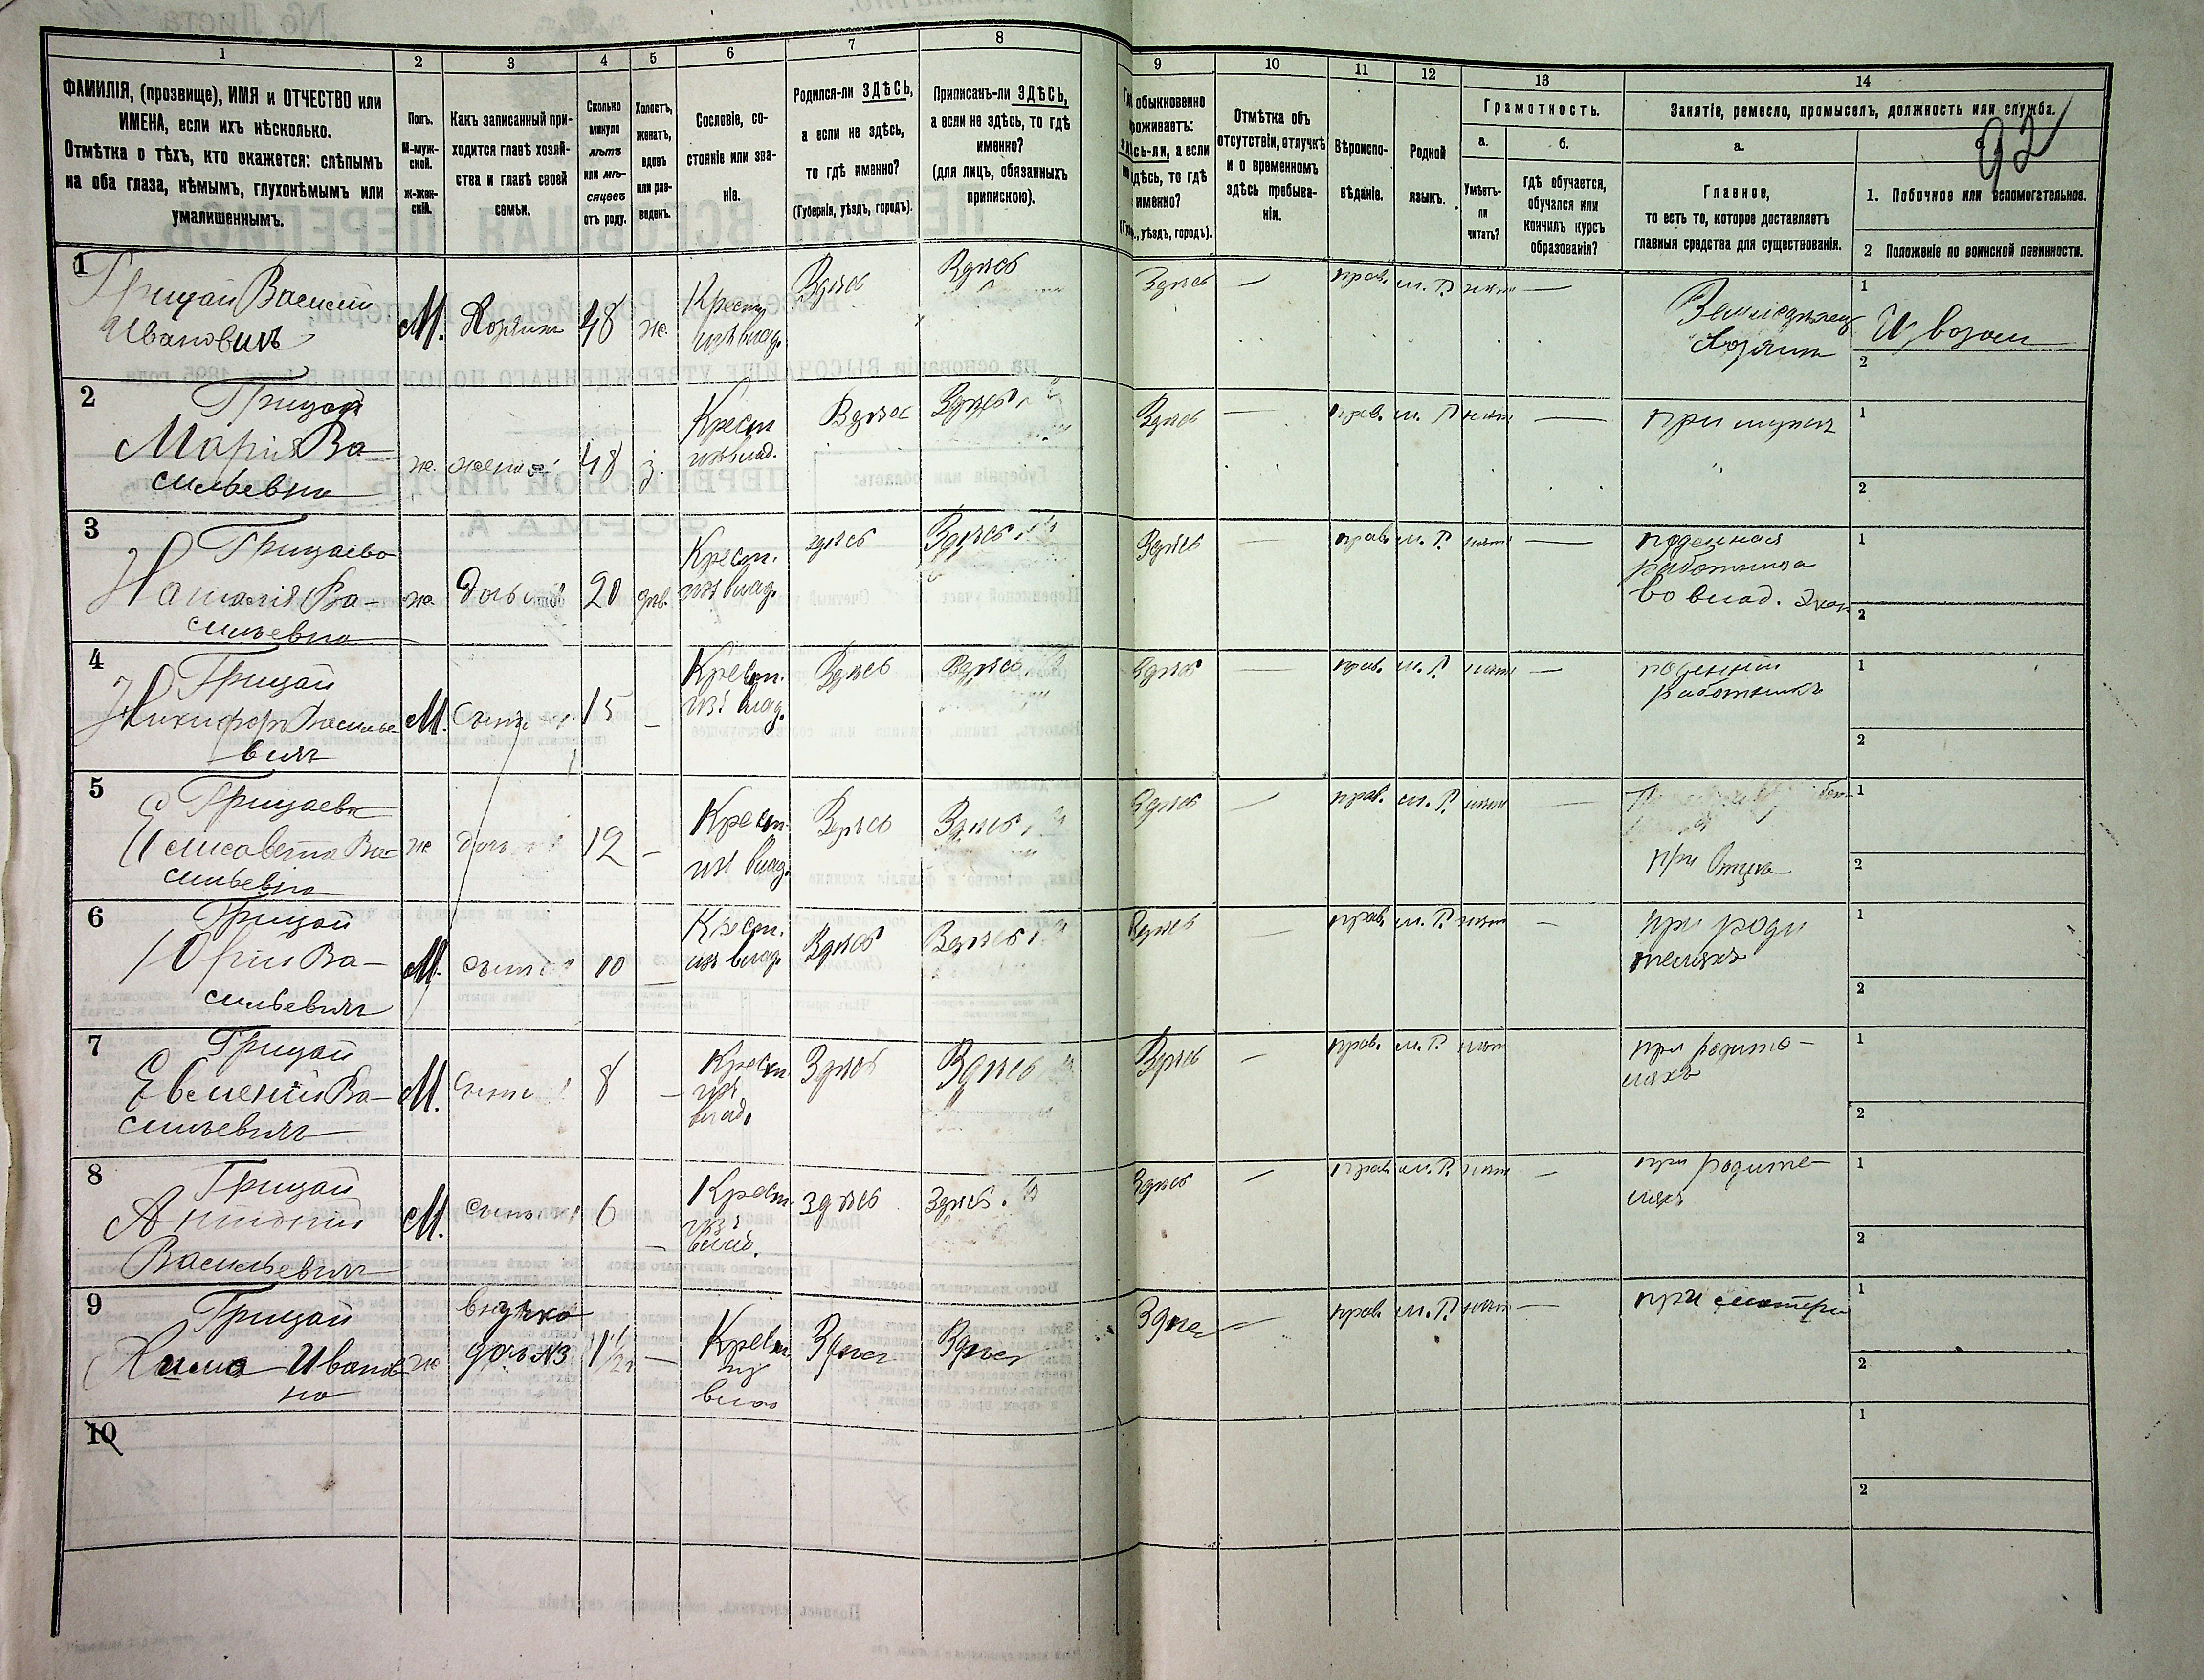 1 2 3 4 5 6 7 8 9 10 11 12 13 14
ФАМИЛІЯ, (прозвище), ИМЯ и ОТЧЕСТВО или
ИМЕНА, если ихъ нѣсколько.
Отмѣтка о тѣхъ, кто окажется: слѣпымъ
на оба глаза, нѣмымъ, глухонѣмымъ или
умалишеннымъ.
Полъ.
М-муж-
ской.
Ж-жен-
скій.
Какъ записанный при-
ходится главѣ хозяй-
ства и главѣ своей
семьи.
Сколько
минуло
лѣтъ
или мѣ-
сяцевъ
отъ роду.
Холостъ,
женатъ,
вдовъ
или раз-
веденъ.
Сословіе, со-
стояніе или зва-
ніе.
Родился-ли ЗДѢСЬ,
а если не здѣсь,
то гдѣ именно?
(Губернія, уѣздъ, городъ).
Приписанъ-ли ЗДѢСЬ,
а если не здѣсь, то гдѣ
именно?
(для лицъ, обязанныхъ
припискою).
обыкновенно
роживаетъ:
сь-ли, а если
здѣсь, то гдѣ
именно?
уѣздъ, городъ).
Отмѣтка объ
отсутствіи, отлучкѣ
и о временномъ
здѣсь пребыва-
ніи.
Вѣроиспо-
вѣданіе.
Родной
языкъ.
Грамотность.
а.
Умѣетъ-
ли
читать?
б.
гдѣ обучается,
обучался или
кончилъ курсъ
образованія?
Занятіе, ремесло, промыселъ, должность или служба.
92
а.
Главное,
то есть то, которое доставляетъ
главныя средства для существованія.
1. Побочное или вспомогательное.
2 Положеніе по воинской повинности.
1
Грицай Василій
Ивановичъ
М. Хозяинъ 48 ж.
Крест.
изъ влад.
Здѣсь Здѣсь Здѣсь — прав. м. Р. нѣтъ —
Земледѣлец
Хозяинъ
1
Извозом
2
2
Грицай
Марія Ва-
сильевна
ж. жена 48 з.
Крест
изъ влад.
Здѣсь Здѣсь Здѣсь — прав. м. Р нѣтъ —
при мужѣ
1
2
3
Грицаева
Наталія Ва-
сильевна
ж дочь 20 дѣв.
Крест.
изъ влад.
здѣсь Здѣсь Здѣсь — прав. м. Р. нѣтъ —
поденная
работница
во влад. Экон
1
2
4
Грицай
Никифоръ Василье
вичъ
М. Сынъ 15 —
Крест.
изъ влад.
Здѣсь Здѣсь Здѣсь — прав. м. Р нѣтъ —
поденный
работникъ
1
2
5
Грицаева
Елисавета Ва-
сильевна
ж дочь 12 —
Крест.
изъ влад.
Здѣсь Здѣсь Здѣсь — прав. м. Р. нѣтъ —
при Отцѣ
1
2
6
Грицай
Юрій Ва-
сильевичъ
М. сынъ 10 —
Крест.
изъ влад.
Здѣсь Здѣсь Здѣсь — прав. м. Р. нѣтъ —
при роди
теляхъ
1
2
7
Грицай
Евменій Ва-
сильевичъ
М. Сынъ 8 —
Крестн
изъ
влад.
Здѣсь Здѣсь Здѣсь — прав. м. Р. нѣтъ
при родите-
ляхъ
1
2
8
Грицай
Антоній
Васильевичъ
М. Сынъ 6 —
Крест.
изъ
влад.
здѣсь Здѣсь. Здѣсь — прав м. Р. нѣтъ —
при родите-
ляхъ
1
2
9
Грицай
Иванов
на
ж
внучка
дочь №3
1 1/2 —
Крест.
из
влад
Здѣсь Здѣсь Здѣсь — прав. м. Р. нѣтъ —
при матери
1
2
10
1
2